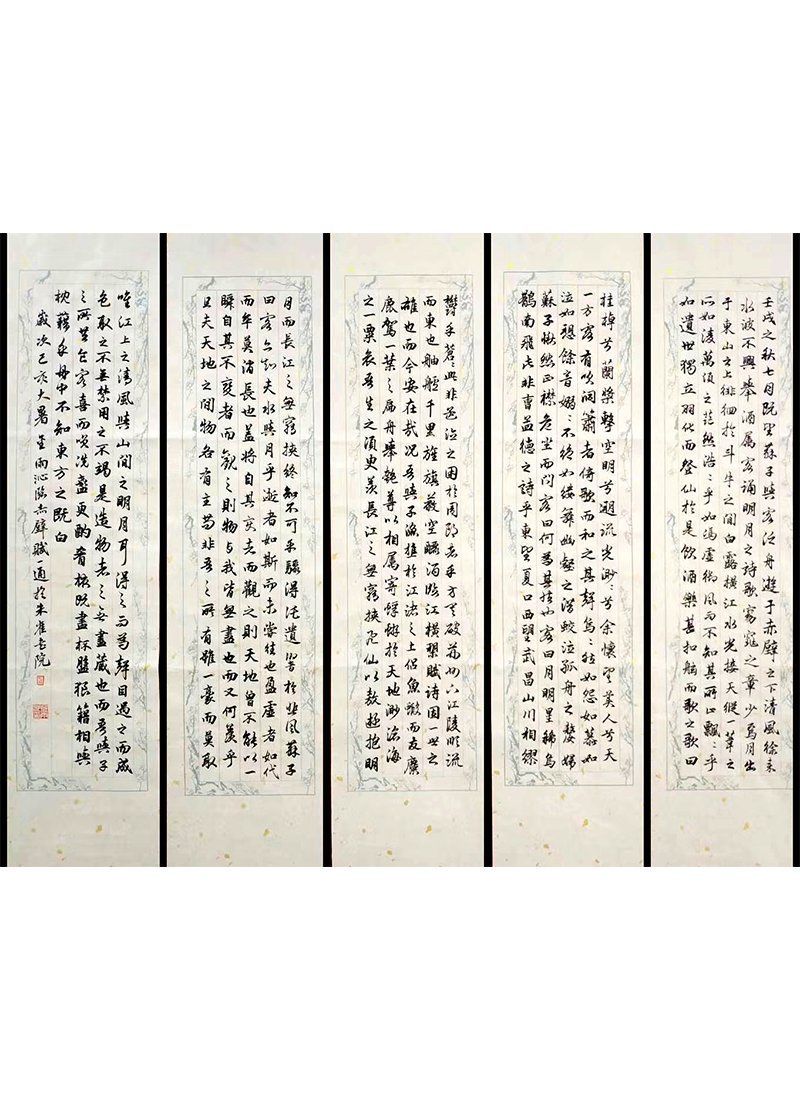 壬戌之秋七月既望蘇子與客泛舟遊于赤壁之下清風徐来
水波不興舉酒属客誦明月之詩歌窈窕之章少焉月出
于東山之上徘徊於斗牛之間白露橫江水光接天縱一葦之
所如淩萬頃之茫然浩浩乎如馮虛御風而不知其所止飄飄乎
如遺世獨立羽化而登仙於是飲酒樂甚扣舷而歌之歌曰
桂棹兮蘭槳擊空明兮遡流光渺渺兮余懷望美人兮天
一方客有吹洞簫者倚歌而和之其聲嗚嗚然如怨如慕如
泣如愬餘音嫋嫋不絕如縷舞幽壑之潛蛟泣孤舟之嫠婦
蘇子愀然正襟危坐而問客曰何為其然也客曰月明星稀烏
鵲南飛此非曹孟德之詩乎東望夏口西望武昌山川相繆
鬱乎蒼蒼此非孟德之困於周郎者乎方其破荊州下江陵順流
而東也舳艫千里旌旗蔽空釃酒臨江橫槊賦詩固一世之
雄也而今安在哉況吾與子漁樵於江渚之上侶魚蝦而友麋
鹿駕一葉之扁舟舉匏尊以相属寄蜉蝣於天地渺滄海
之一粟哀吾生之須臾羨長江之無窮挾飛仙以遨遊抱明
月而長江之無窮挾終知不可乎驟得託遺響於悲風蘇子
曰客亦知夫水與月乎逝者如斯而未嘗往也盈虛者如代
而卒莫消長也蓋將自其變者而觀之則天地曾不能以一
瞬自其不變者而觀之則物與我皆無盡也而又何羨乎
且夫天地之間物各有主苟非吾之所有雖一毫而莫取
唯江上之清風與山間之明月耳得之而為聲目遇之而成
色取之不無禁用之不竭是造物者之無盡藏也而吾與子
之所共食客喜而笑洗盞更酌肴核既盡杯盤狼籍相與
枕藉乎舟中不知東方之既白
歲次己亥大暑金雨沁臨赤壁賦一通於朱雀書院